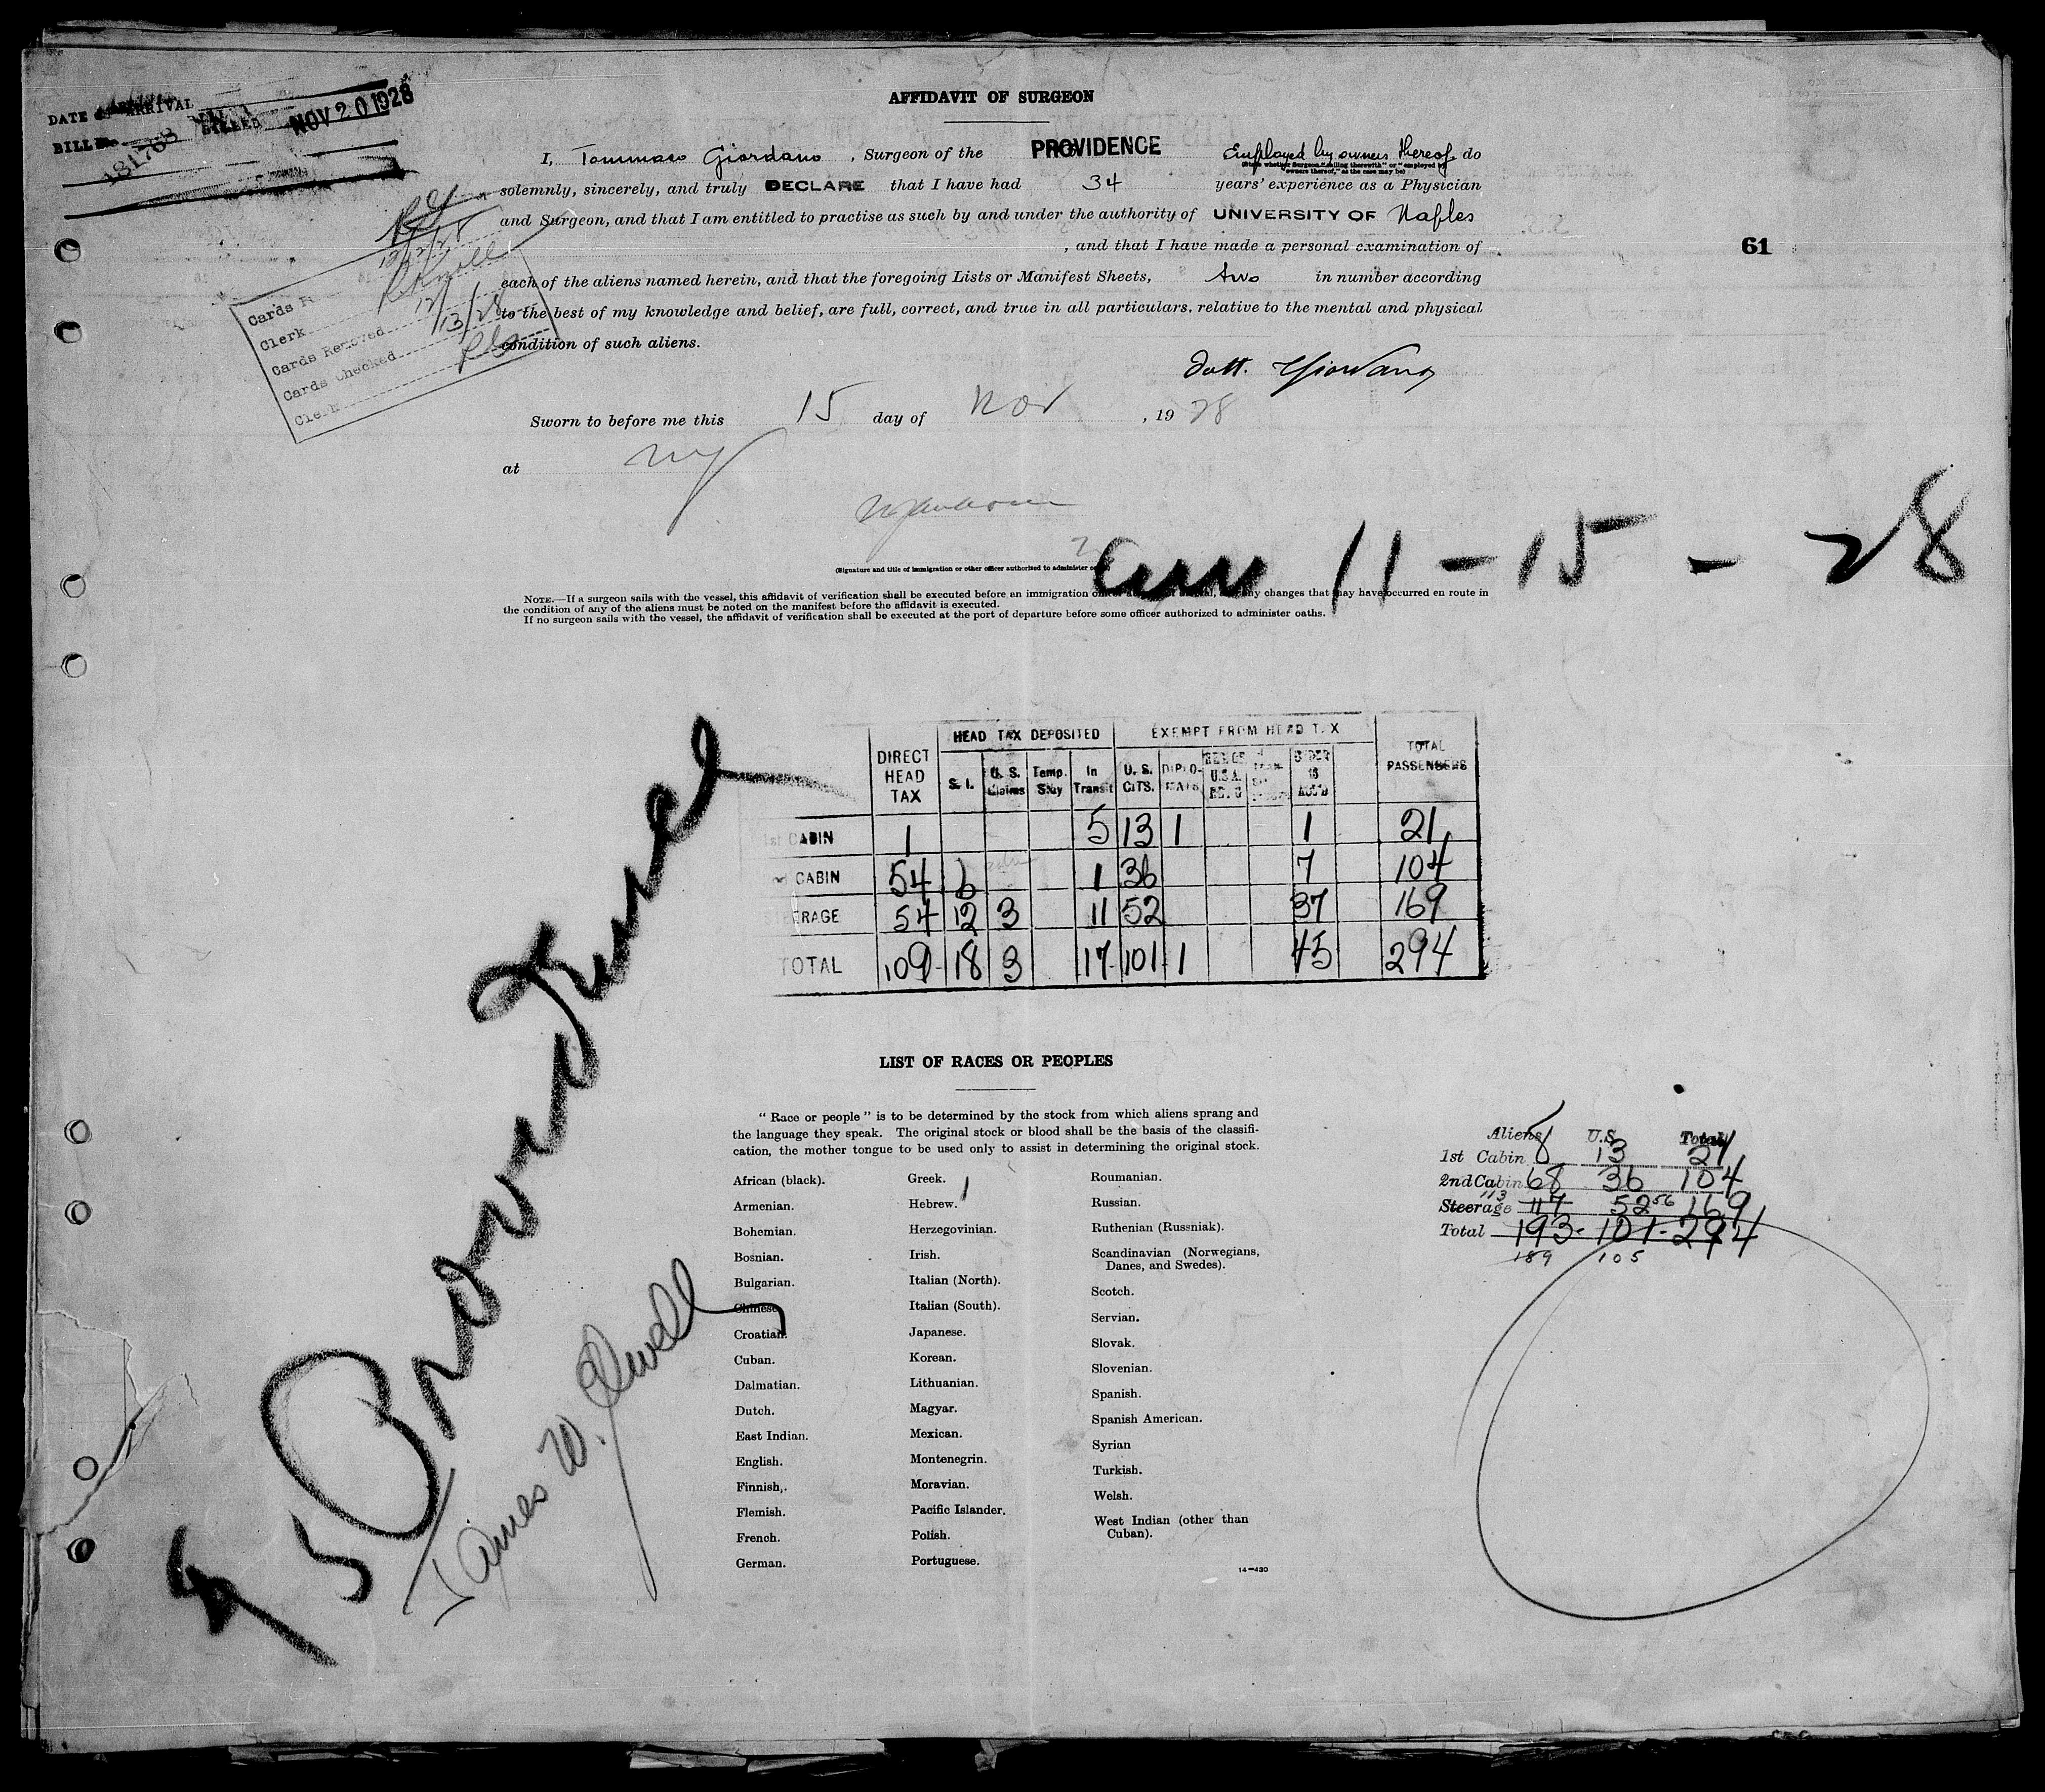 DATE OF ARRIVAL
BILL No. 181768 BILLED NOV 20 1928
Cards
Clerk
Cards Removed 12/13/28
Cards Checked
Clerk
AFFIDAVIT OF SURGEON
I, Tommaso Giordano, Surgeon of the PROVIDENCE Employed by owners thereof, do
(State whether Surgeon "sailing therewith" or "employed by owners thereof," as the case may be)
solemnly, sincerely, and truly DECLARE that I have had 34 years' experience as a Physician
and Surgeon, and that I am entitled to practise as such by and under the authority of UNIVERSITY OF Naples
, and that I have made a personal examination of
61
each of the aliens named herein, and that the foregoing Lists or Manifest Sheets, two in number according
to the best of my knowledge and belief, are full, correct, and true in all particulars, relative to the mental and physical
condition of such aliens.
Dott. Giordano
Sworn to before me this 15 day of Nov, 1928
at NY
(Signature and title of immigration or other officer authorized to administer
11-15-28
NOTE.—If a surgeon sails with the vessel, this affidavit of verification shall be executed before an immigration changes that may have occurred en route in
the condition of any of the aliens must be noted on the manifest before the affidavit is executed.
If no surgeon sails with the vessel, the affidavit of verification shall be executed at the port of departure before some officer authorized to administer oaths.
HEAD TAX DEPOSITED EXEMPT FROM HEAD TAX
DIRECT HEAD TAX S. I. U. S. Claims Temp. Stay In Transit U. S. CITS. DIPLOMATS UNDER 16 ACC'D TOTAL PASSENGERS
1st CABIN 1 5 13 1 1 21
CABIN 54 6 1 36 7 104
STEERAGE 54 12 3 11 52 37 169
TOTAL 109 18 3 17 101 1 45 294
SS Providence
James W. Elwell
LIST OF RACES OR PEOPLES
"Race or people" is to be determined by the stock from which aliens sprang and
the language they speak. The original stock or blood shall be the basis of the classifi-
cation, the mother tongue to be used only to assist in determining the original stock.
African (black).
Armenian.
Bohemian.
Bosnian.
Bulgarian.
Chinese.
Croatian.
Cuban.
Dalmatian.
Dutch.
East Indian.
English.
Finnish,.
Flemish.
French.
German.
Greek.
Hebrew.
Herzegovinian.
Irish.
Italian (North).
Italian (South).
Japanese.
Korean.
Lithuanian.
Magyar.
Mexican.
Montenegrin.
Moravian.
Pacific Islander.
Polish.
Portuguese.
Roumanian.
Russian.
Ruthenian (Russniak).
Scandinavian (Norwegians,
Danes, and Swedes).
Scotch.
Servian.
Slovak.
Slovenian.
Spanish.
Spanish American.
Syrian
Turkish.
Welsh.
West Indian (other than
Cuban).
14—430
Aliens U.S. Total
1st Cabin 8 13 21
2nd Cabin 68 36 104
Steerage 117 113 52 56 169
Total 193 - 101 - 294
189 105